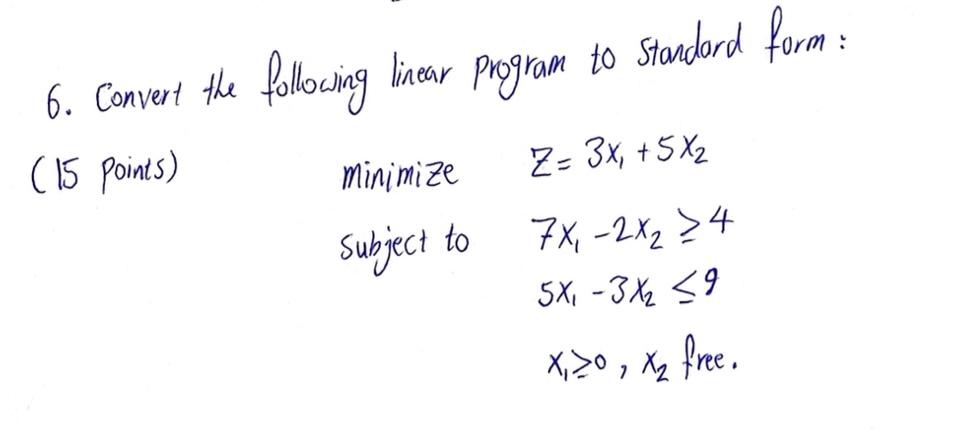 6. Convert the following linear program to Standard form :
(15 Points) minimize Z = 3x₁ + 5x₂
Subject to 7x₁ - 2x₂ ≥ 4
5x₁ - 3x₂ ≤ 9
x₁ ≥ 0 , x₂ free.